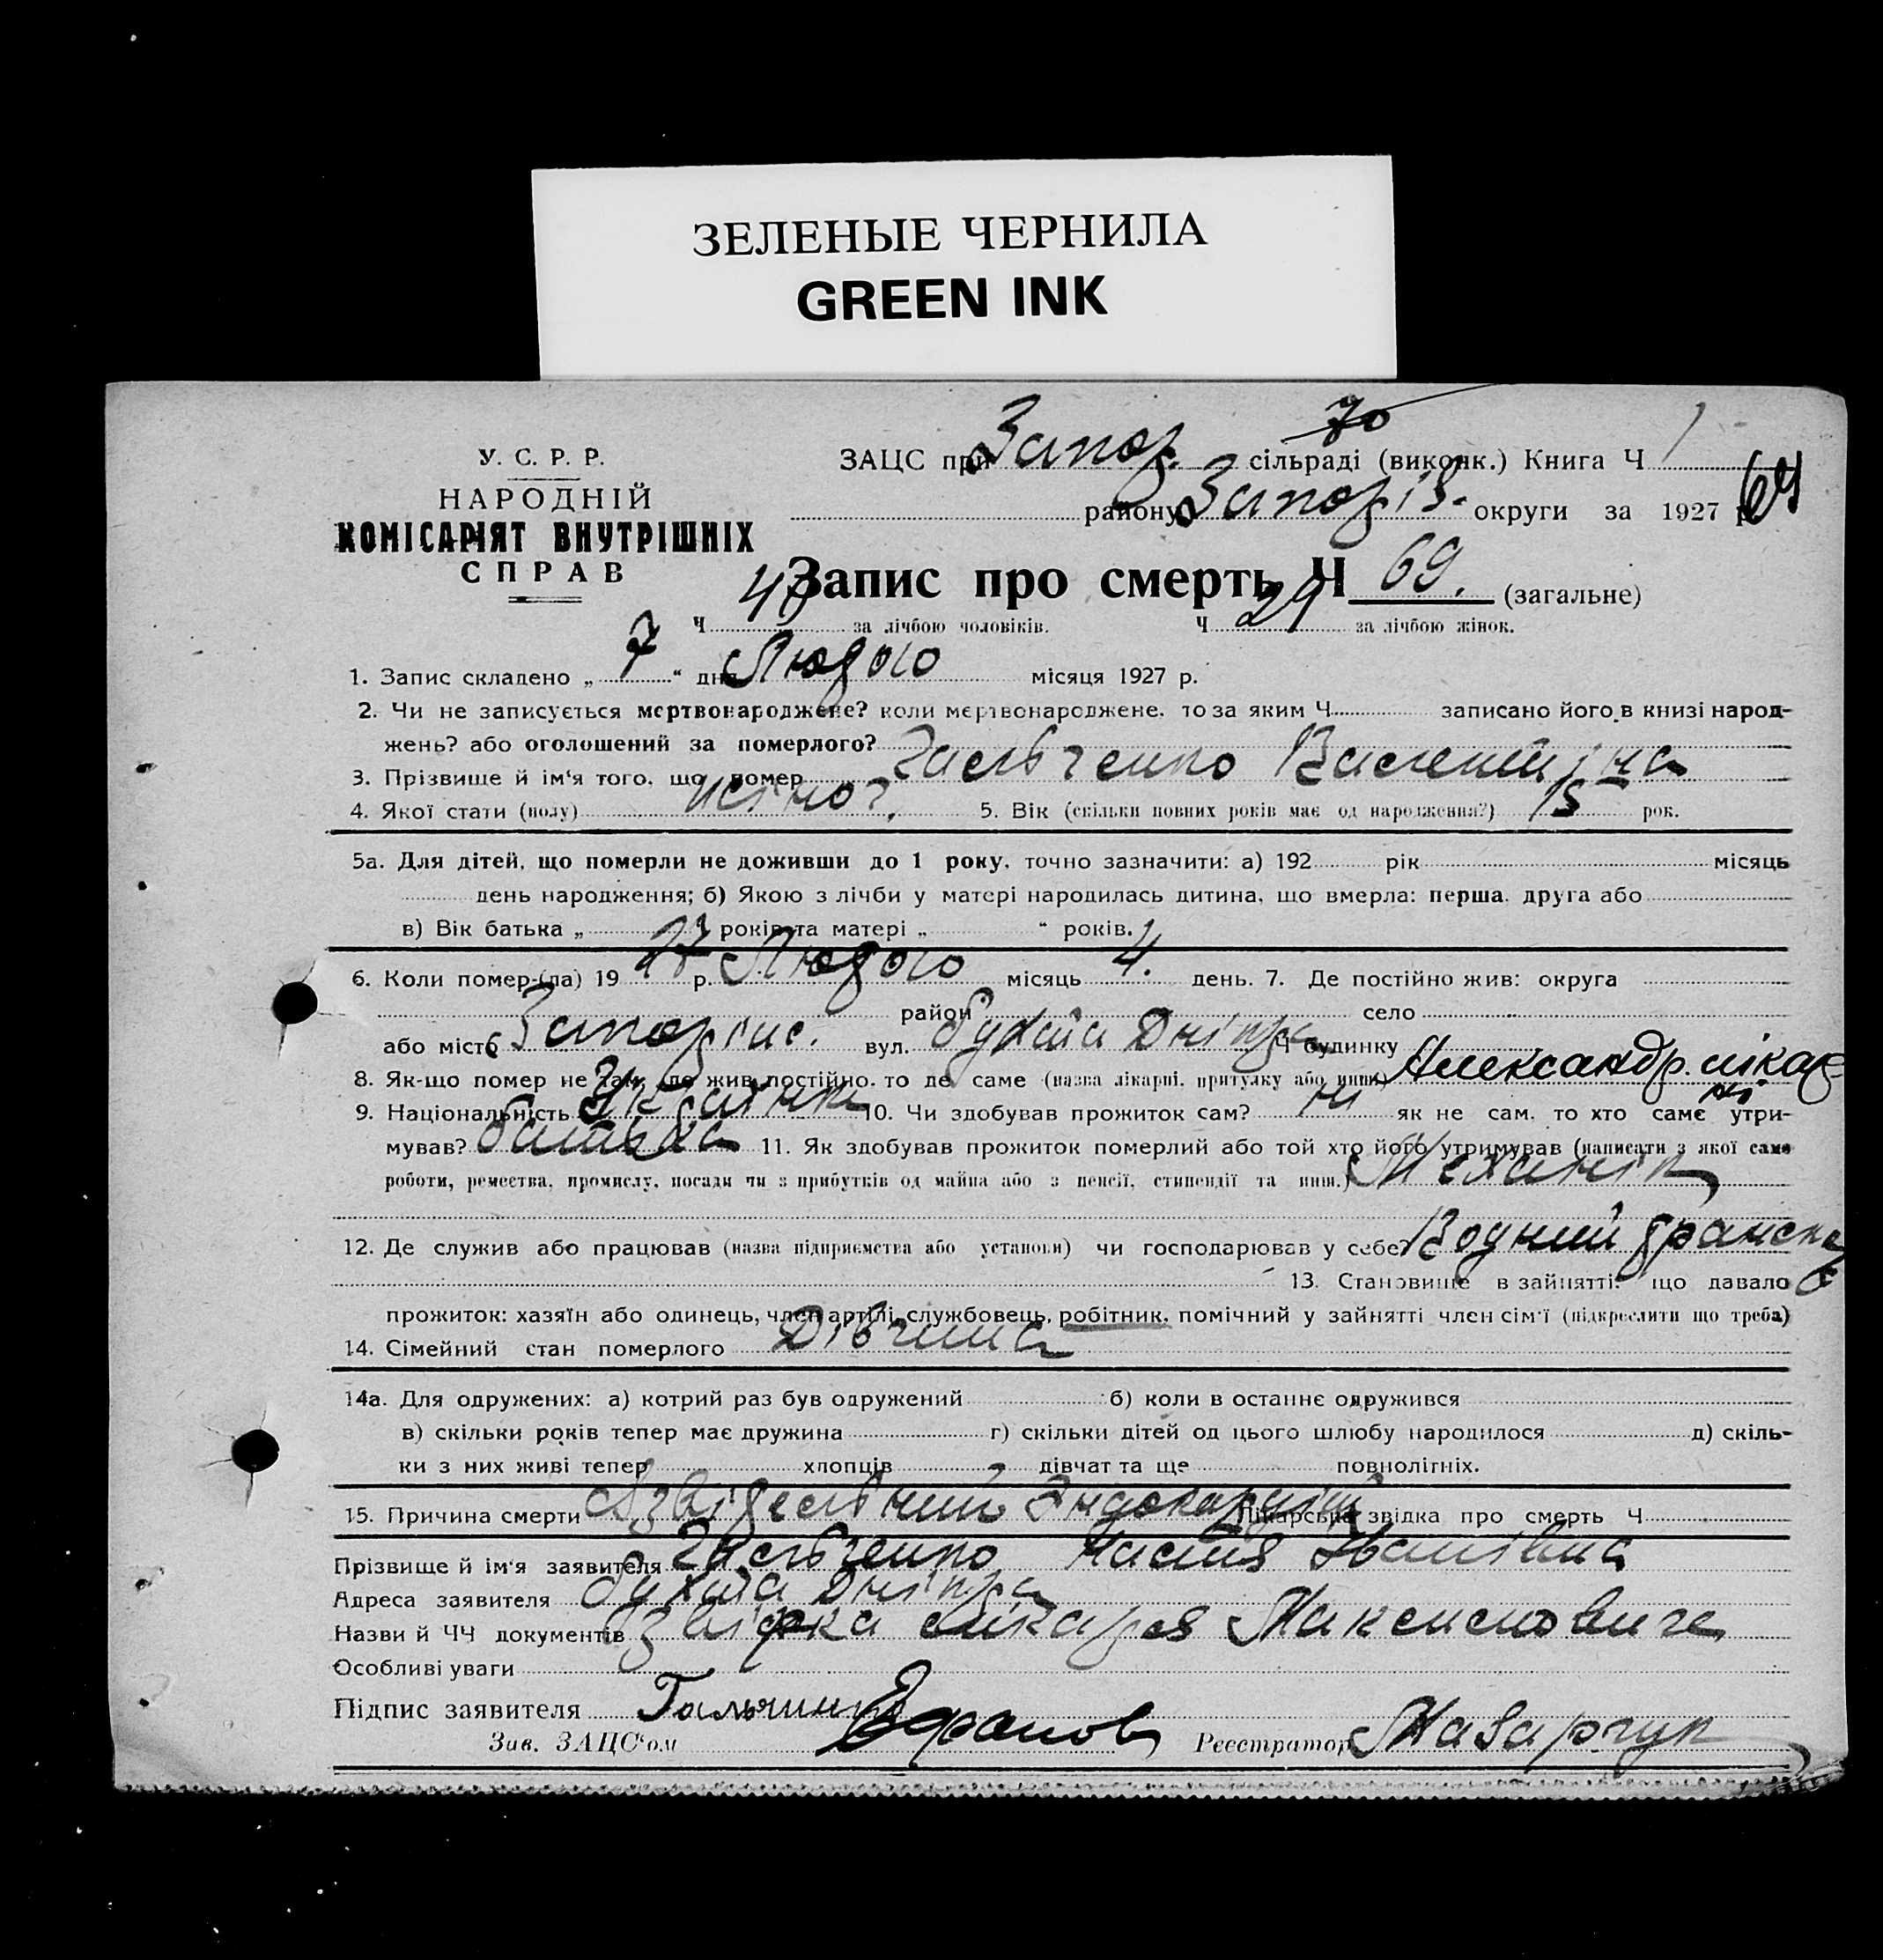 ЗЕЛЕНЫЕ ЧЕРНИЛА
GREEN INK
У. С. Р. Р.
НАРОДНІЙ
КОМІСАРІЯТ ВНУТРІШНІХ
СПРАВ
70
ЗАЦС при Запор. сільраді (виконк.) Книга Ч 1
району Запоріз. округи за 1927 р. 69
Запис про смерть Ч 69. (загальне)
Ч 40 за лічбою чоловіків. Ч 29 за лічбою жінок.
1. Запис складено „ 7 “ дня Лютого місяця 1927 р.
2. Чи не записується мертвонароджене? коли мертвонароджене, то за яким Ч записано його в книзі народ-
жень? або оголошений за померлого?
3. Прізвище й ім'я того, що помер Валентина
4. Якої стати (полу) жіноч. 5. Вік (скільки повних років має од народження?) 15 рок.
5а. Для дітей, що померли не доживши до 1 року, точно зазначити: а) 192 рік місяць
день народження; б) Якою з лічби у матері народилась дитина, що вмерла: перша, друга або
в) Вік батька „ “ років та матері „ “ років.
6. Коли помер-(ла) 19 27 р. Лютого місяць 4. день. 7. Де постійно жив: округа
район село
або місто Запоріж. вул. бухта Дніпра Ч будинку
8. Як-що помер не там, де жив постійно, то де саме (назва лікарні, притулку або инш.) Александр. лікар
ні
9. Національність Українка 10. Чи здобував прожиток сам? ні як не сам, то хто саме утри-
мував? батька 11. Як здобував прожиток померлий або той хто його утримував (написати з якої само
роботи, ремества, промислу, посади чи з прибутків од майна або з пенсії, стипендії та инш.) Механік
12. Де служив або працював (назва підприємства або установи) чи господарював у себе? Водний транспор
т
13. Становище в зайнятті: що давало
прожиток: хазяїн або одинець, член артілі, службовець, робітник, помічний у зайнятті член сім'ї (підкреслити що треба)
14. Сімейний стан померлого Дівчина
14а. Для одружених: а) котрий раз був одружений б) коли в останнє одружився
в) скільки років тепер має дружина г) скільки дітей од цього шлюбу народилося д) скіль-
ки з них живі тепер хлопців дівчат та ще повнолітніх.
15. Причина смерти Лікарська звідка про смерть Ч
Прізвище й ім'я заявителя Настя Іванівна
Адреса заявителя бухта Дніпра
Назви й ЧЧ документів звідка лікаря Максимовича
Особливі уваги
Підпис заявителя
Зав. ЗАЦС'ом Реєстратор Назарчук